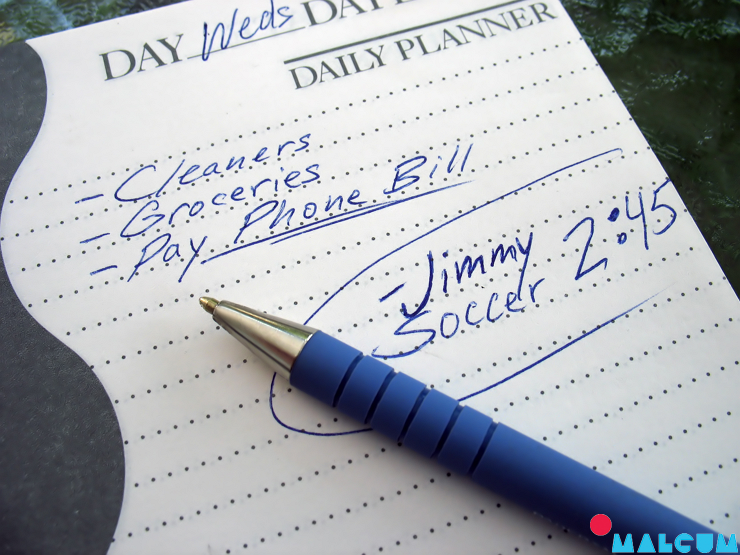 DAY Weds
DAILY PLANNER
- Cleaners
- Groceries
- Pay Phone Bill
- Jimmy
Soccer 2:45
MALCUM